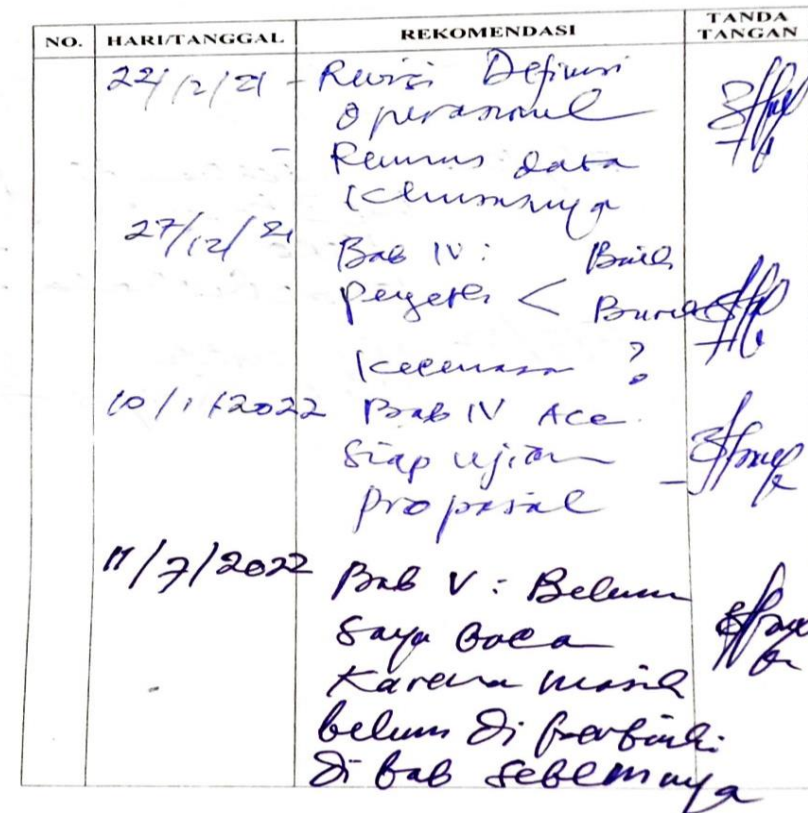 NO. HARI/TANGGAL REKOMENDASI TANDA TANGAN
22/12/21 - Revisi Definisi
Operasional
- Rumus data
Khususnya
27/12/21 Bab IV : Baik
Pengeth < Buruk
Kecemasan ?
10/1/2022 Bab IV Acc.
Siap Ujian
Proposal
11/7/2022 Bab V : Belum
Saya baca
Karena masih
belum di perbaiki
di bab sebelumnya